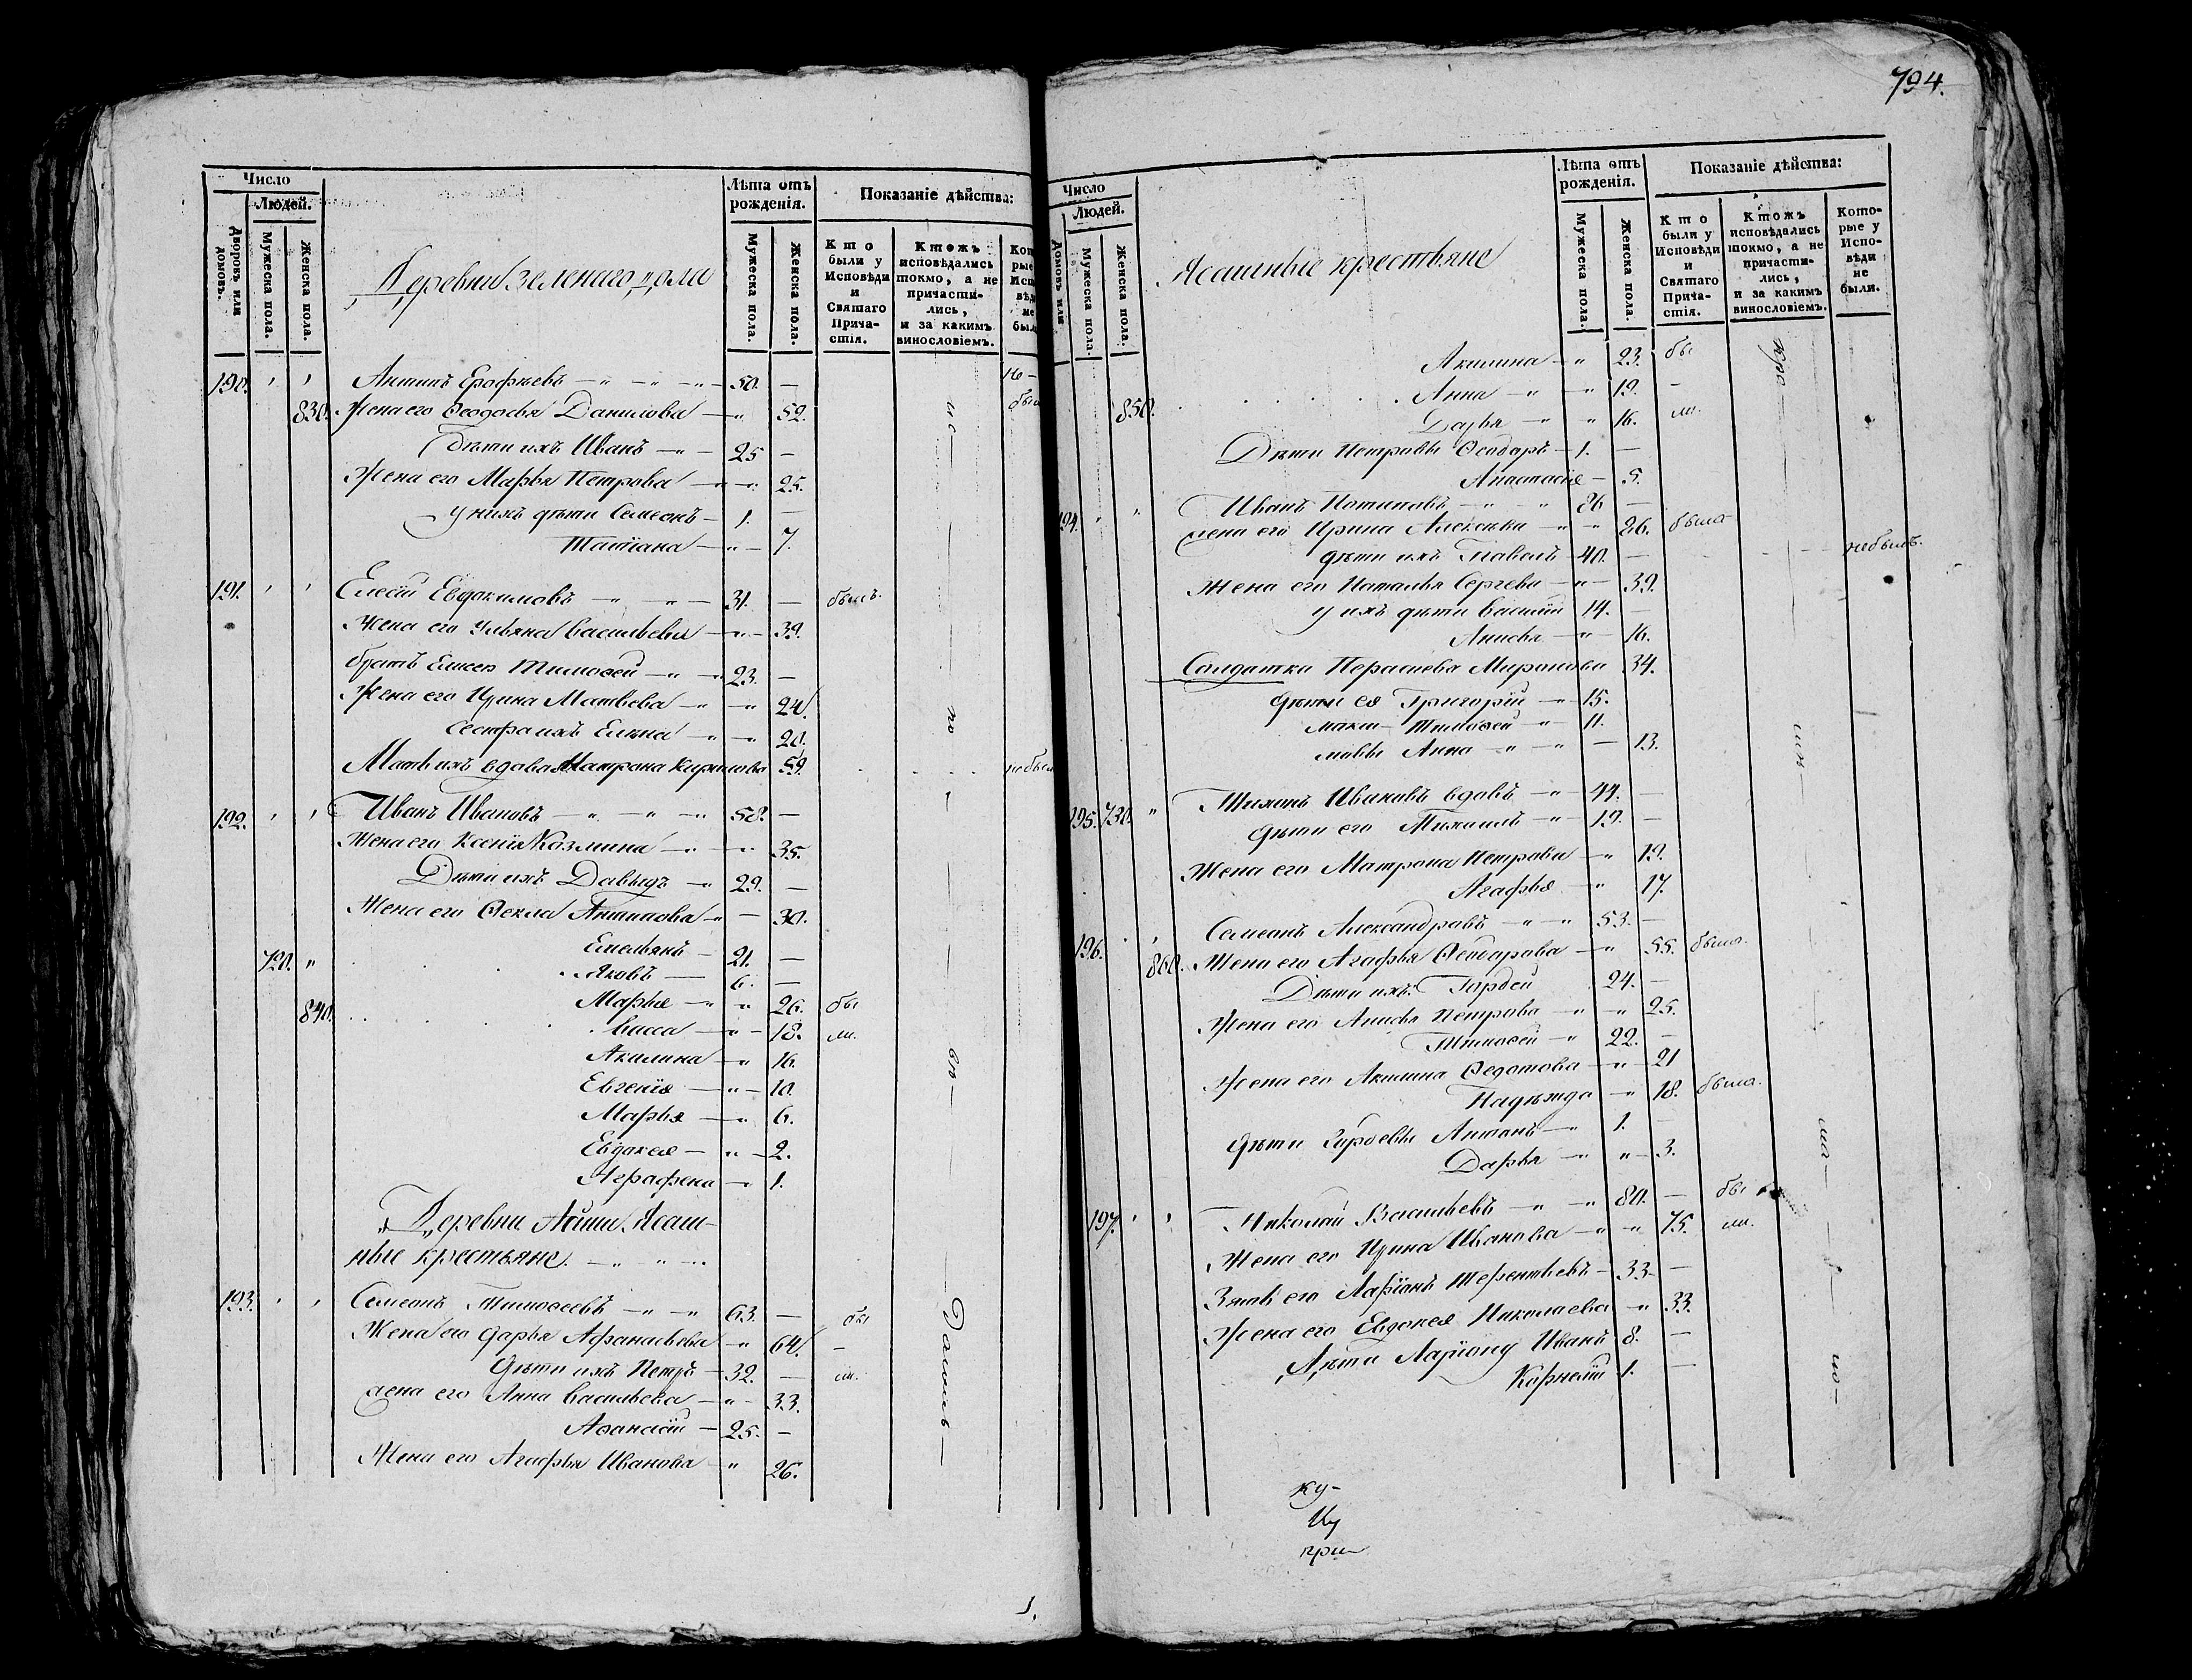 794.
Число
Людей.
Дворовъ или домовъ.
Мужеска пола.
Женска пола.
Лѣта отъ рожденія.
Мужеска пола.
Женска пола.
Показаніе дѣйства:
Кто были у Исповѣди и Святаго Причастія.
Ктожъ исповѣдались токмо, а не причастились, и за какимъ винословіемъ.
Деревни Зеленаго дола
190. Антипъ Ерофѣевъ 50. — не
830. Жена его Ѳеодосья Данилова 52. был
Дѣти ихъ Иванъ 25 —
Жена его Марья Петрова 25.
у нихъ дѣти Семеонъ 1. —
Татіана 7.
191. Елесѣй Евдокимовъ 31. — былъ.
Жена его Ульяна Васильева 39.
братъ Елисея Тимоѳей 23. —
Жена его Ирина Матвѣева 24.
Сестра ихъ Елена 20.
Мать ихъ вдова Матрона Кирилова 59. не был
192. Иванъ Ивановъ 58. —
Жена его Ксенія Козмина 35.
Дѣти ихъ Давыдъ 29. —
Жена его Ѳекла Антипова 30.
720. Емельянъ 21. —
Яковъ 6. —
840. Марья 26. бы
Васса 18. ли.
Акилина 16.
Евгенія 10.
Марья 6.
Евдокея 2.
Аграфена 1.
Деревни Айши Ясаш-
ные крестьяне.
193. Семеонъ Тимоѳеевъ 63. — бы
Жена его Дарья Афанасьева 64. —
Дѣти ихъ Петръ 32. — ли.
Жена его Анна Васильева 33.
Аѳанасій 25. —
Жена его Агафья Иванова 26.
ис по вѣ дались
Число
Людей.
Домовъ или
Мужеска пола.
Женска пола.
Лѣта отъ рожденія.
Мужеска пола.
Женска пола.
Показаніе дѣйства:
Кто были у Исповѣди и Святаго Причастія.
Ктожъ исповѣдались токмо, а не причастились, и за какимъ винословіемъ.
Которые у Исповѣди не были.
Ясашные крестьяне
Акилина 23. бы
Анна 19. —
850. Дарья 16. ли.
Дѣти Петровы Ѳеодоръ 1. —
Анастасія 5.
194. Иванъ Потаповъ 86 —
жена его Ирина Алексѣева 86. была
дѣти ихъ Павелъ 40. — не былъ.
Жена его Наталья Сергѣева 39.
у ихъ дѣти Василій 14. —
Анисья 16.
Солдатка Парасиевя Миронова 34.
дѣти ея Григорій 15.
Тимоѳей 11.
Анна — 13.
195. 730. Тихонъ Ивановъ вдовъ 44. —
дѣти его Михаилъ 19. —
Жена его Матрона Петрова 19.
Агафья 17.
196. Семеонъ Александровъ 53. —
860. Жена его Агафья Ѳеодорова 55. была.
Дѣти ихъ Гордей 24. —
Жена его Анисья Петрова 25.
Тимоѳей 22. —
Жена его Акилина Ѳедотова 21
Надѣжда 18. была.
Дѣти Гордеевы Антонъ 1. —
Дарья 3.
197. Николай Васильевъ 80. — бы
Жена его Ирина Иванова 75. ли.
Зять его Ларіонъ Терентьевъ 33. —
Жена его Евдокея Николаева 33.
Дѣти Ларіону Иванъ 8. —
Корнелій 1. —
ку-